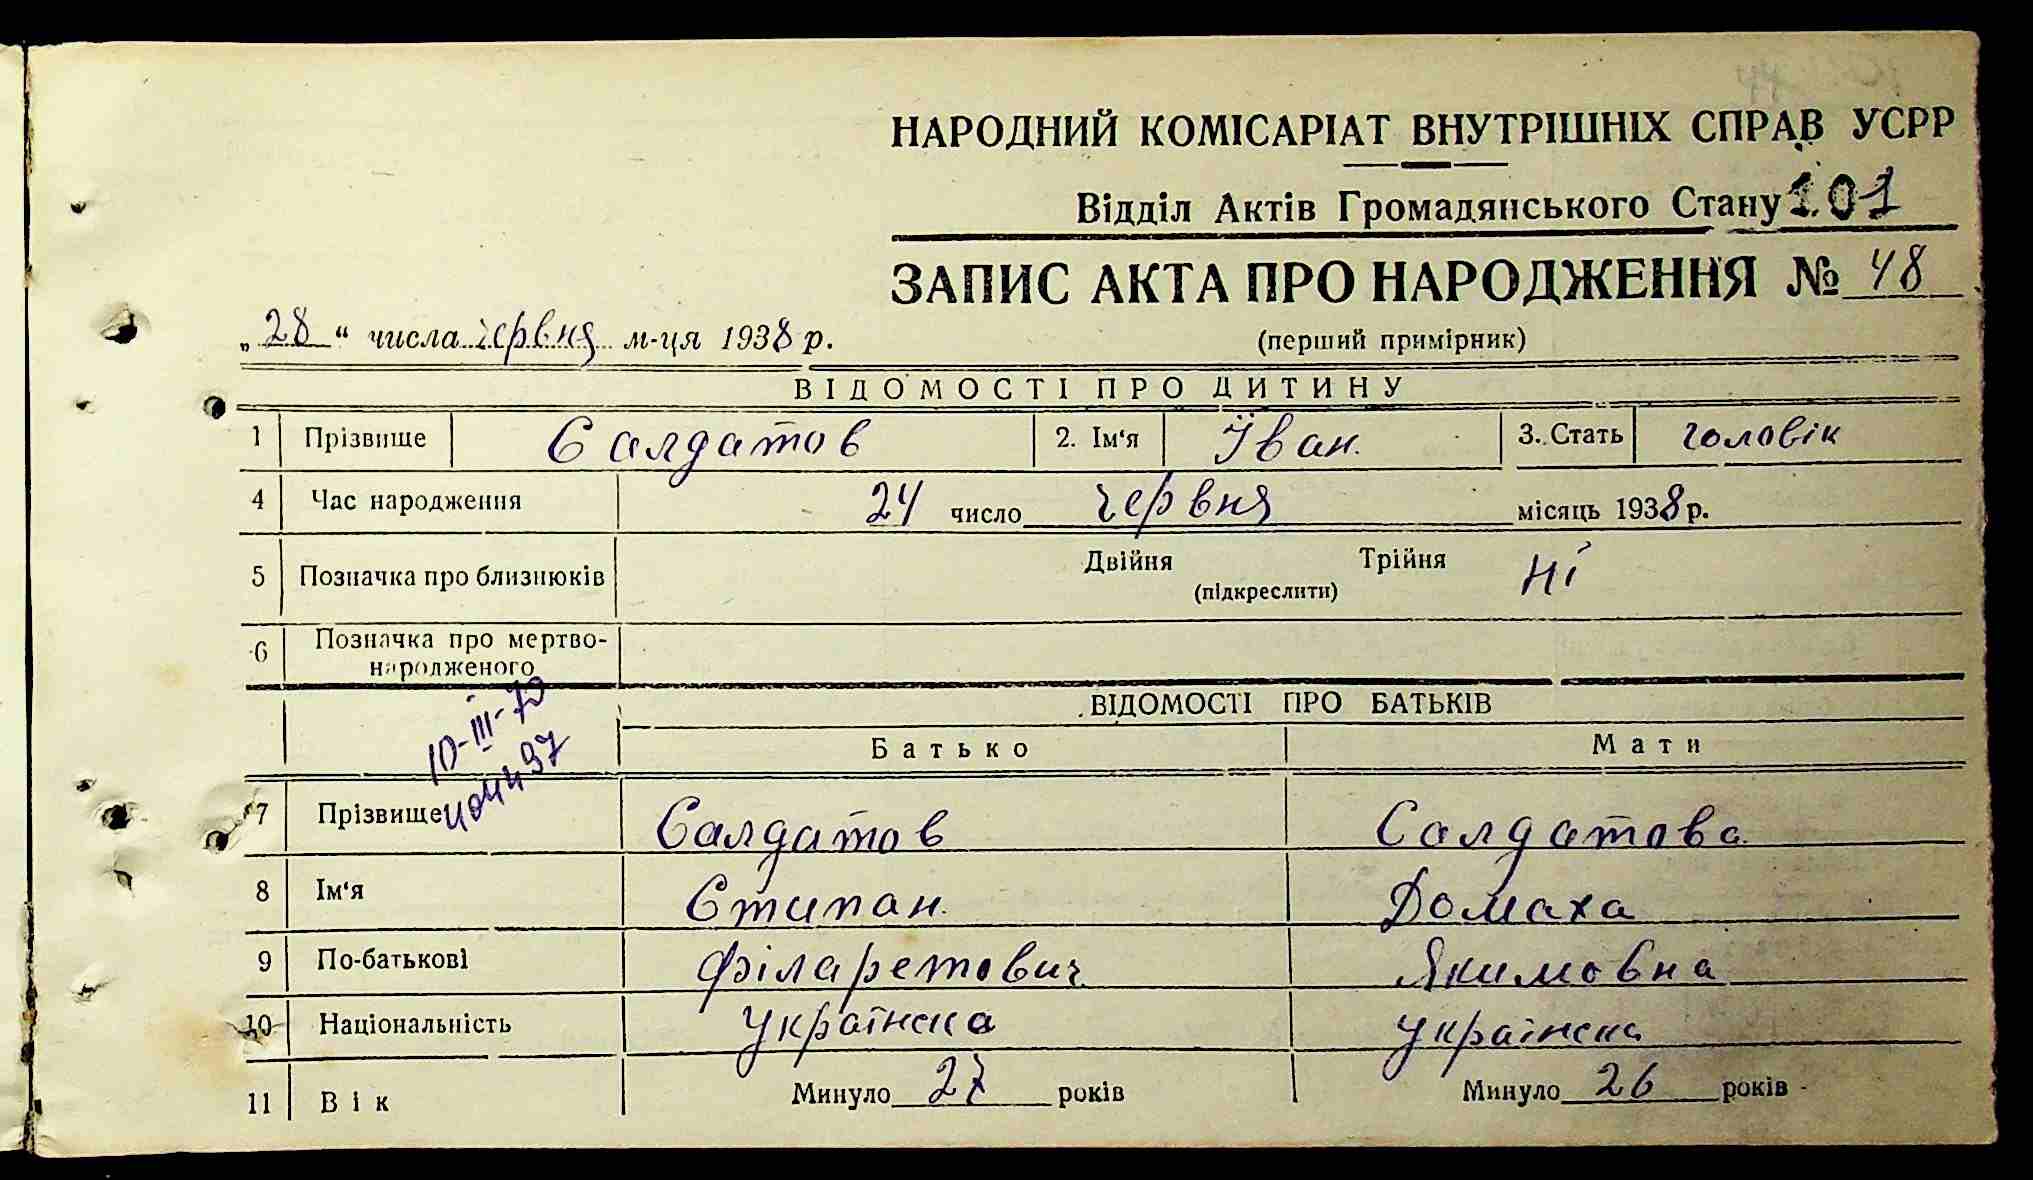 НАРОДНИЙ КОМІСАРІАТ ВНУТРІШНІХ СПРАВ УСРР
Відділ Актів Громадянського Стану 101
ЗАПИС АКТА ПРО НАРОДЖЕННЯ № 48
„28“ числа червня м-ця 1938 р.
(перший примірник)
ВІДОМОСТІ ПРО ДИТИНУ
1 Прізвище Салдатов 2. Ім‘я Іван. 3. Стать чоловік
4 Час народження 24 число червня місяць 1938 р.
5 Позначка про близнюків Двійня Трійня ні
(підкреслити)
6 Позначка про мертво-
народженого
10-III-70
ВІДОМОСТІ ПРО БАТЬКІВ
Батько Мати
7 Прізвище Салдатов Салдатова
8 Ім‘я Стипан Домаха
9 По-батькові Філаретович Якимовна
10 Національність Українска Українска
11 Вік Минуло 27 років Минуло 26 років